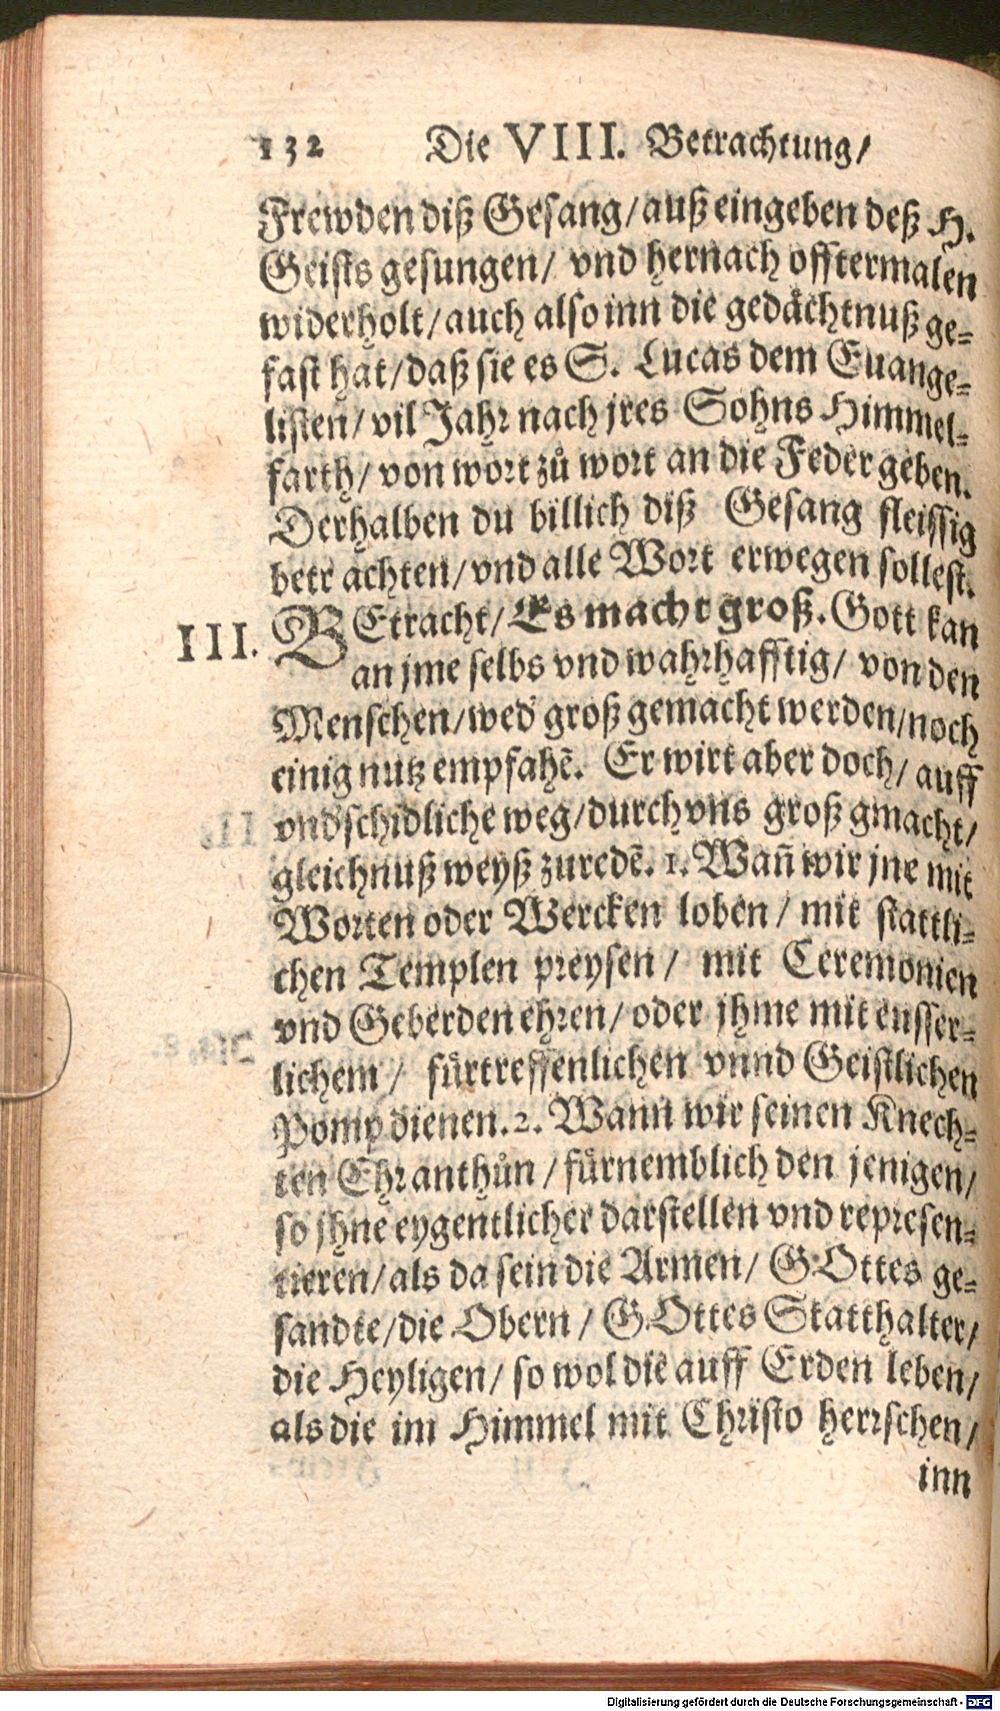 132 Die VIII. Betrachtung/
Frewden diß Gesang/ auß eingeben deß H.
Geists gesungen/ vnd hernach offtermalen
widerholt/ auch also inn die gedaͤchtnuß ge-
fast hat/ daß sie es S. Lucas dem Euange-
listen/ vil Jahr nach jres Sohns Himmel-
farth/ von wort zuͦ wort an die Feder geben.
Derhalben du billich diß Gesang fleissig
betrachten/ vnd alle Wort erwegen sollest.
III. BEtracht/ Es macht groß. Gott kan
an jme selbs vnd wahrhafftig/ von den
Menschen/ wed' groß gemacht werden/ noch
einig nutz empfahē. Er wirt aber doch/ auff
vnd'schidliche weg/ durch vns groß gmacht/
gleichnuß weyß zuredē. 1. Wañ wir jne mit
Worten oder Wercken loben/ mit stattli-
chen Templen preysen/ mit Ceremonien
vnd Geberden ehren/ oder jhme mit eusser-
lichem/ fuͤrtreffenlichen vnnd Geistlichen
Pomp dienen. 2. Wann wir seinen Knech-
ten Ehr anthuͦn/ fuͤrnemblich den jenigen/
so jhne eygentlicher darstellen vnd represen-
tieren/ als da sein die Armen/ GOttes ge-
sandte/ die Obern/ GOttes Statthalter/
die Heyligen/ so wol die auff Erden leben/
als die im Himmel mit Christo herrschen/
inn
Digitalisierung gefördert durch die Deutsche Forschungsgemeinschaft - DFG